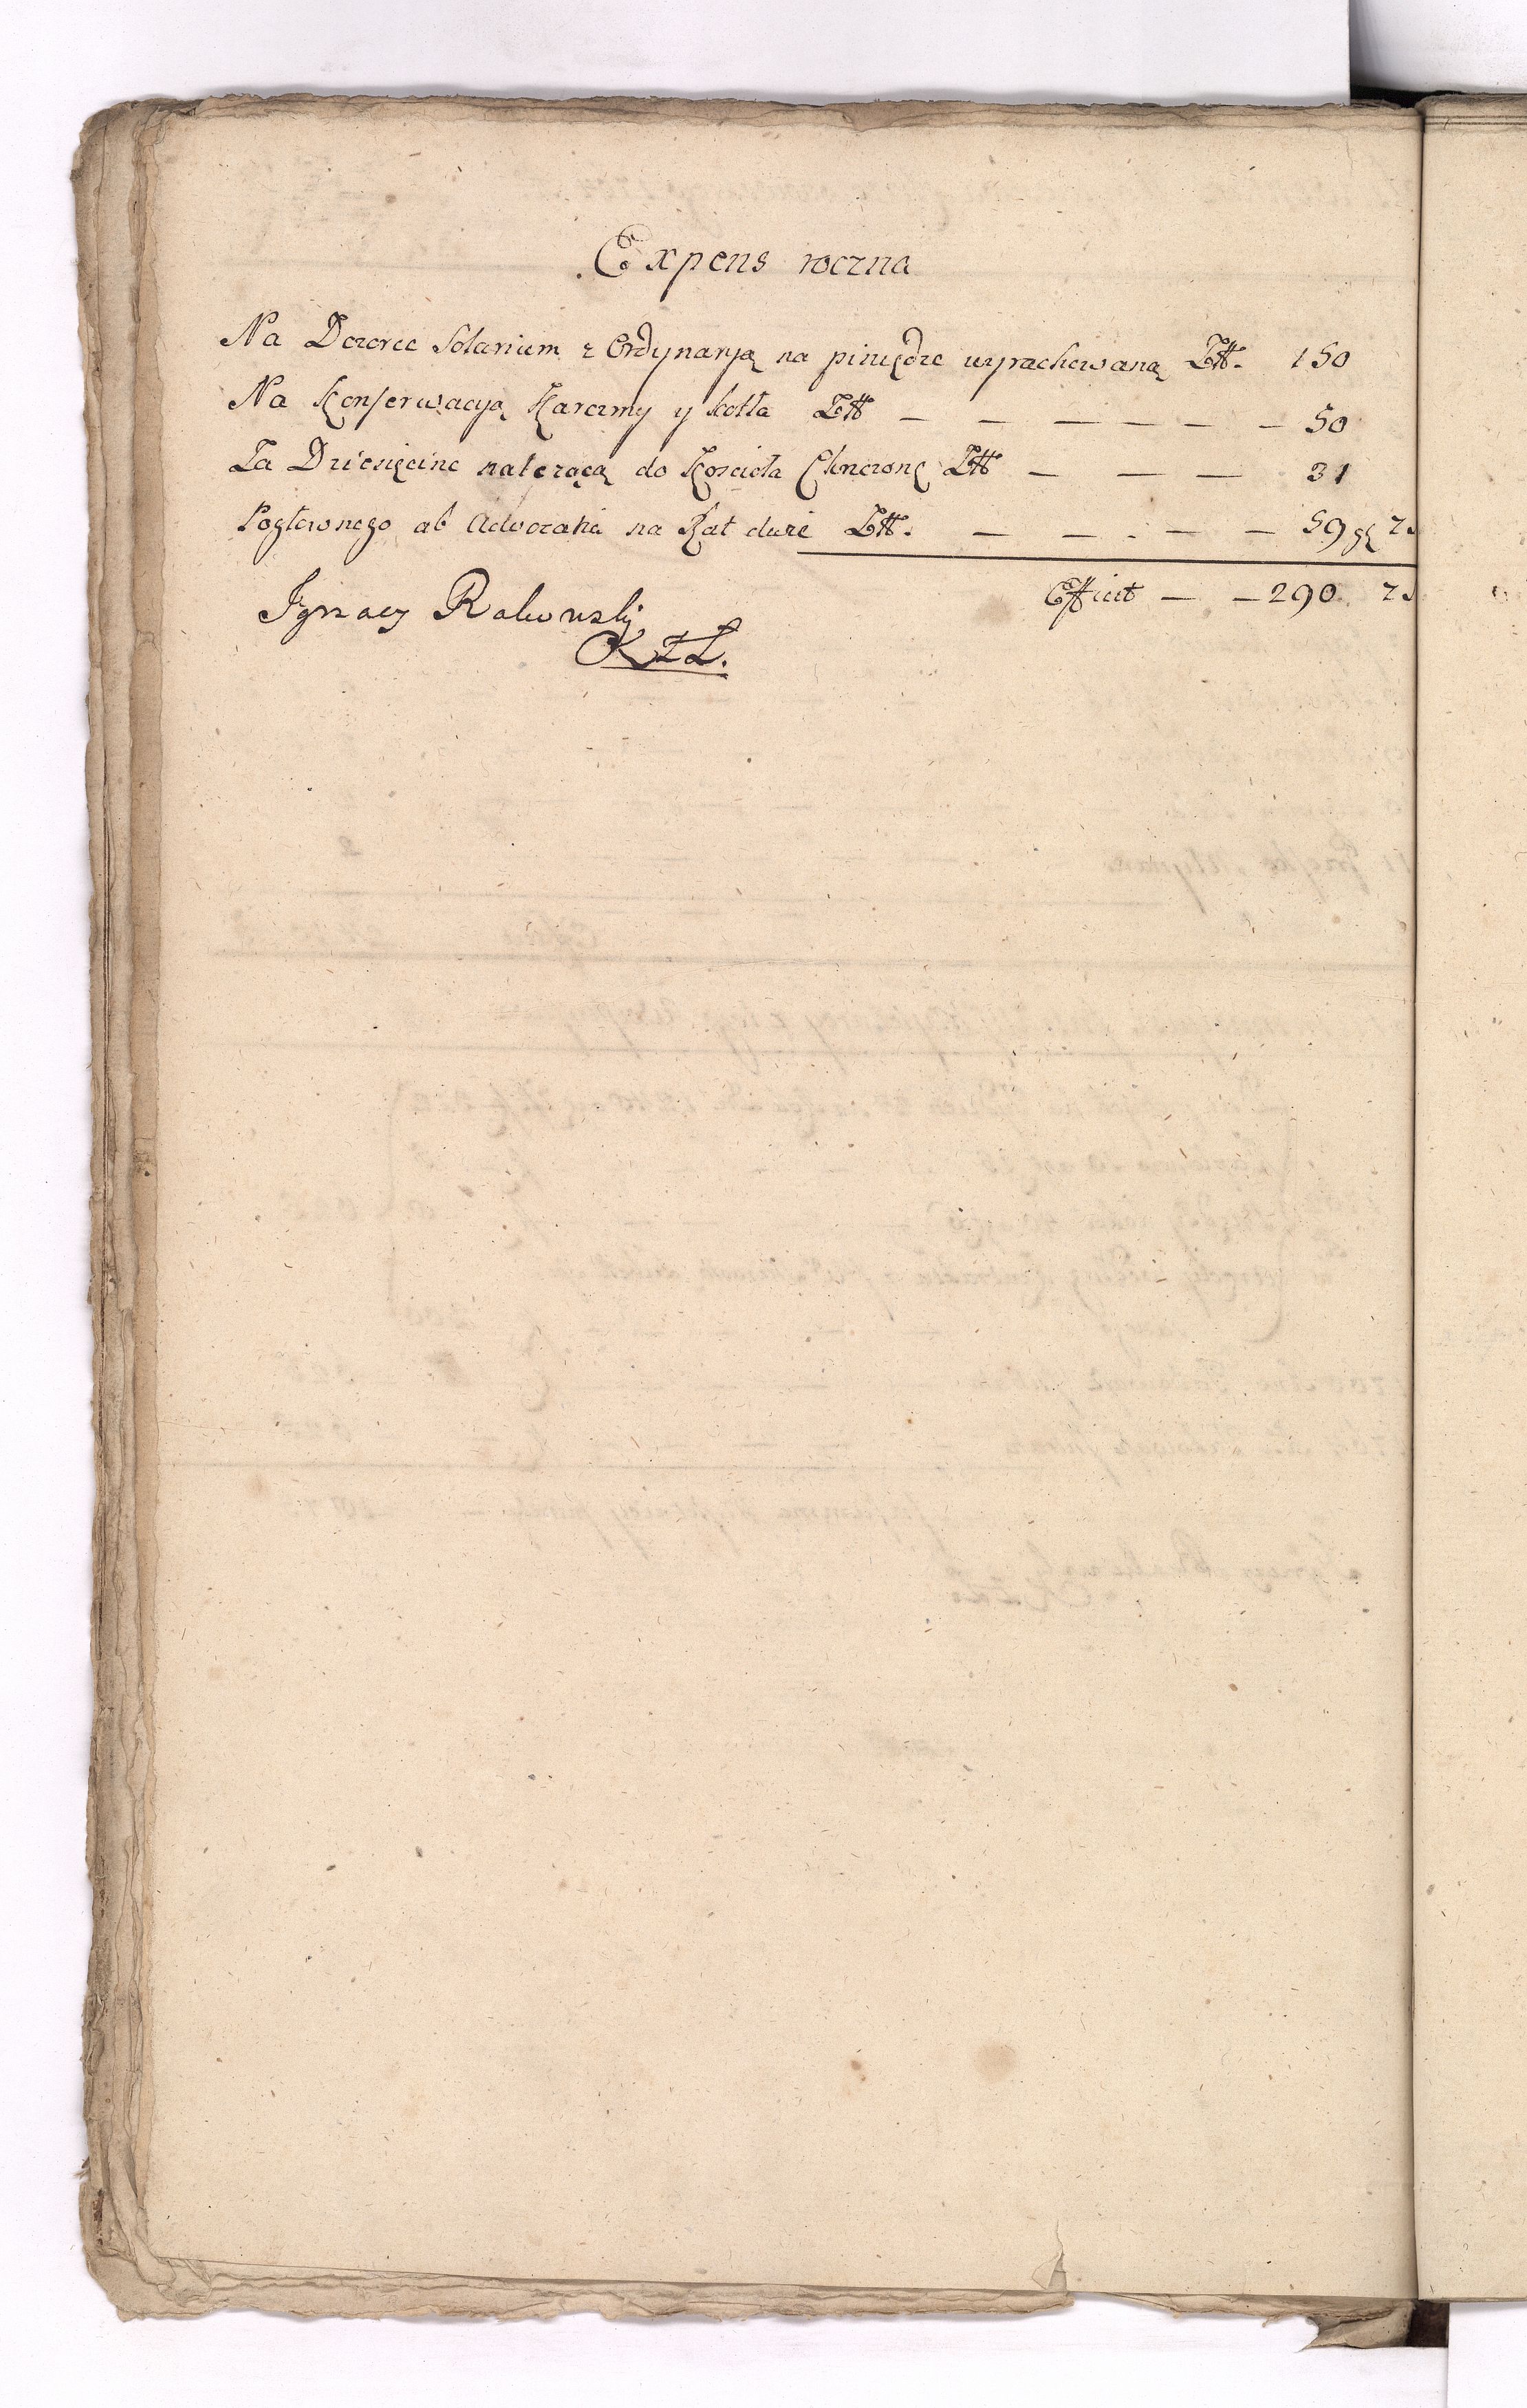 Expens roczna
Na Dozorce Solarium z Ordynaryą na piniędze wyrachowaną Złł. 150
Na Konserwacyą Karczmy y kotła Złł — — — — — — 50
Za Dziesięcine należącą do Kościoła Złł — — — 31
Pogłownego ab Advocatia na Rat dwie Złł. — — . — — 59 gr
Efficit — — 290
Ignacy Rakowski
KZL.